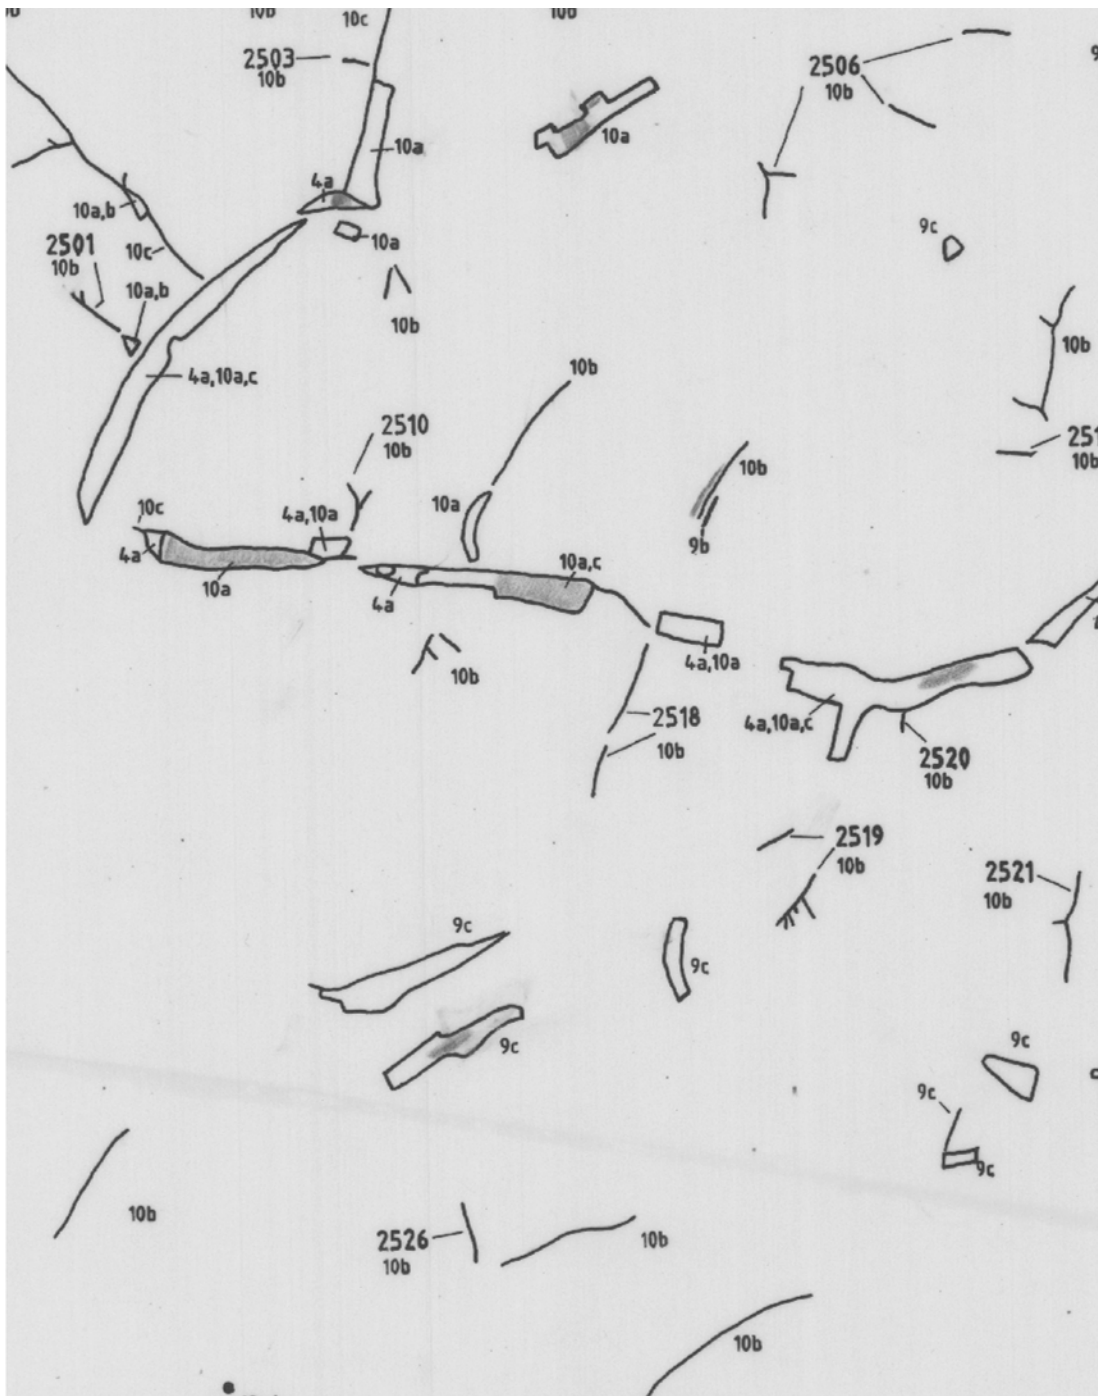 10b
10c
10b
2503
10b
2506
10b
10a
10a
4a
10a,b
10a
9c
2501
10b
10c
10a,b
10b
10b
4a,10a,c
10b
2510
10b
10b
10b
10a
10c
4a,10a
9b
4a
10a
10a,c
4a
4a,10a
10b
2518
10b
4a,10a,c
2520
10b
2519
10b
2521
10b
9c
9c
9c
9c
9c
9c
10b
2526
10b
10b
10b